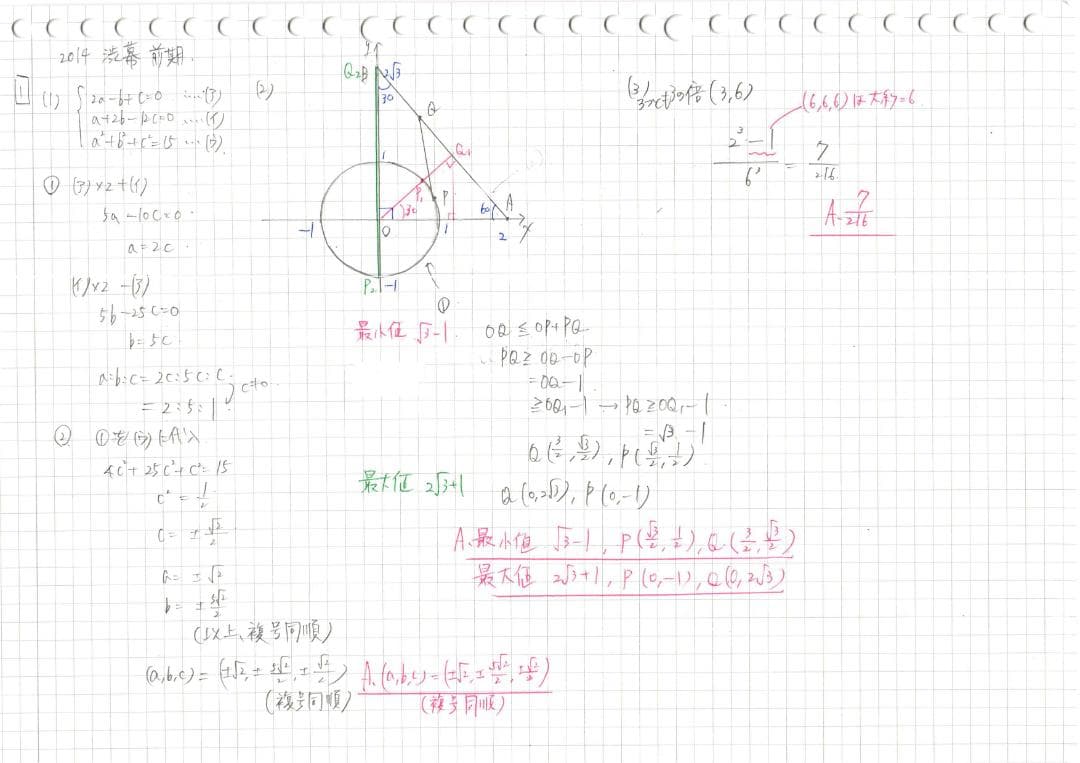 2014 渋幕 前期.
1
(1) { 2a-b+c=0 …(ア)
a+2b-12c=0 …(イ)
a²+b²+c²=15 …(ウ)
① (ア)×2+(イ)
5a-10c=0
a=2c
(イ)×2-(ア)
5b-25c=0
b=5c
a:b:c=2c:5c:c
=2:5:1
c≠0
② ①を(ウ)に代入
4c²+25c²+c²=15
c²=1/2
c=±√2/2
a=±√2
b=±5√2/2
(以上、複号同順)
(a,b,c)=(±√2,±5√2/2,±√2/2)
(複号同順)
A.(a,b,c)=(±√2,±5√2/2,±√2/2)
(複号同順)
(2)
y
Q₂B 2√3
30
Q
1
Q₁
P₁ P
60 A
30
-1 O 1 2 x
P₂ -1
①
最小値 √3-1
OQ≦OP+PQ
∴PQ≧OQ-OP
=OQ-1
≧OQ₁-1 → PQ≧OQ₁-1
=√3-1
Q(3/2,√3/2), P(√3/2,1/2)
最大値 2√3+1
Q(0,2√3), P(0,-1)
A.最小値 √3-1, P(√3/2,1/2), Q(3/2,√3/2)
最大値 2√3+1, P(0,-1), Q(0,2√3)
(3)
3つとも3の倍(3,6)
(6,6,6)は大約=6
2³-1/6³=7/216
A.7/216